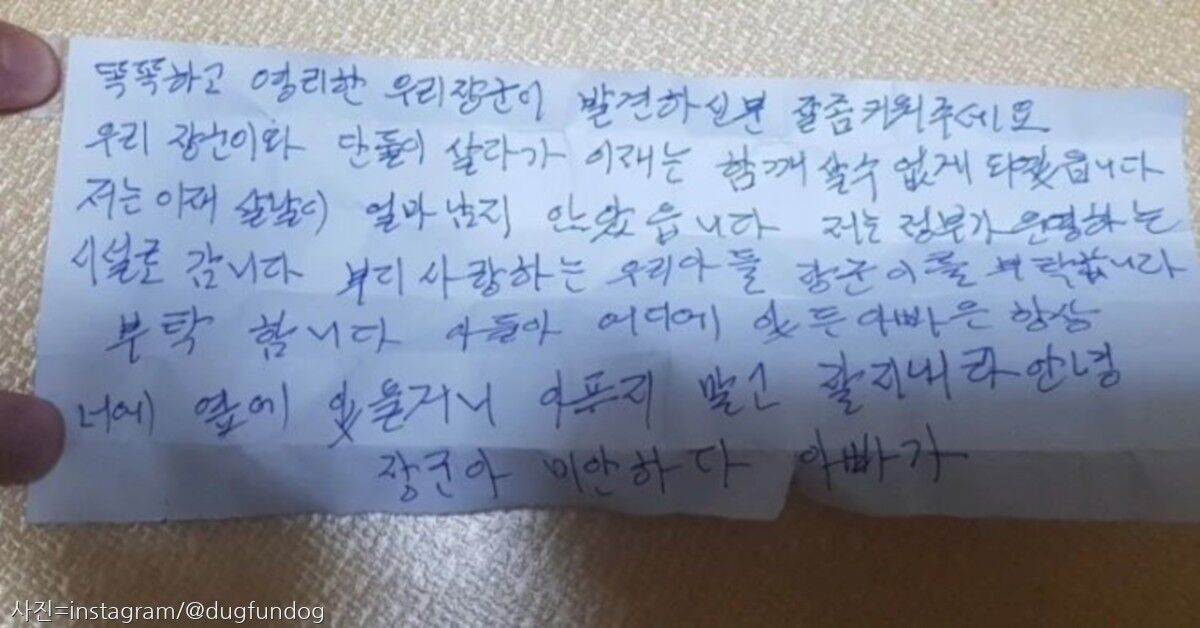 똑똑하고 영리한 우리장군이 발견하신분 잘좀키워주세요
우리 장군이와 단둘이 살다가 이재는 함께 살수 없게 되었읍니다
저는 이재 살날이 얼마 남지 안았읍니다 저는 정부가 운영하는
시설로 갑니다 부디 사랑하는 우리아들 장군이를 부탁합니다
부탁 합니다 아들아 어디에 있든 아빠은 항상
너에 옆에 있을거니 아프지 말고 잘지내라 안녕
장군아 미안하다 아빠가
사진=instagram/@dugfundog